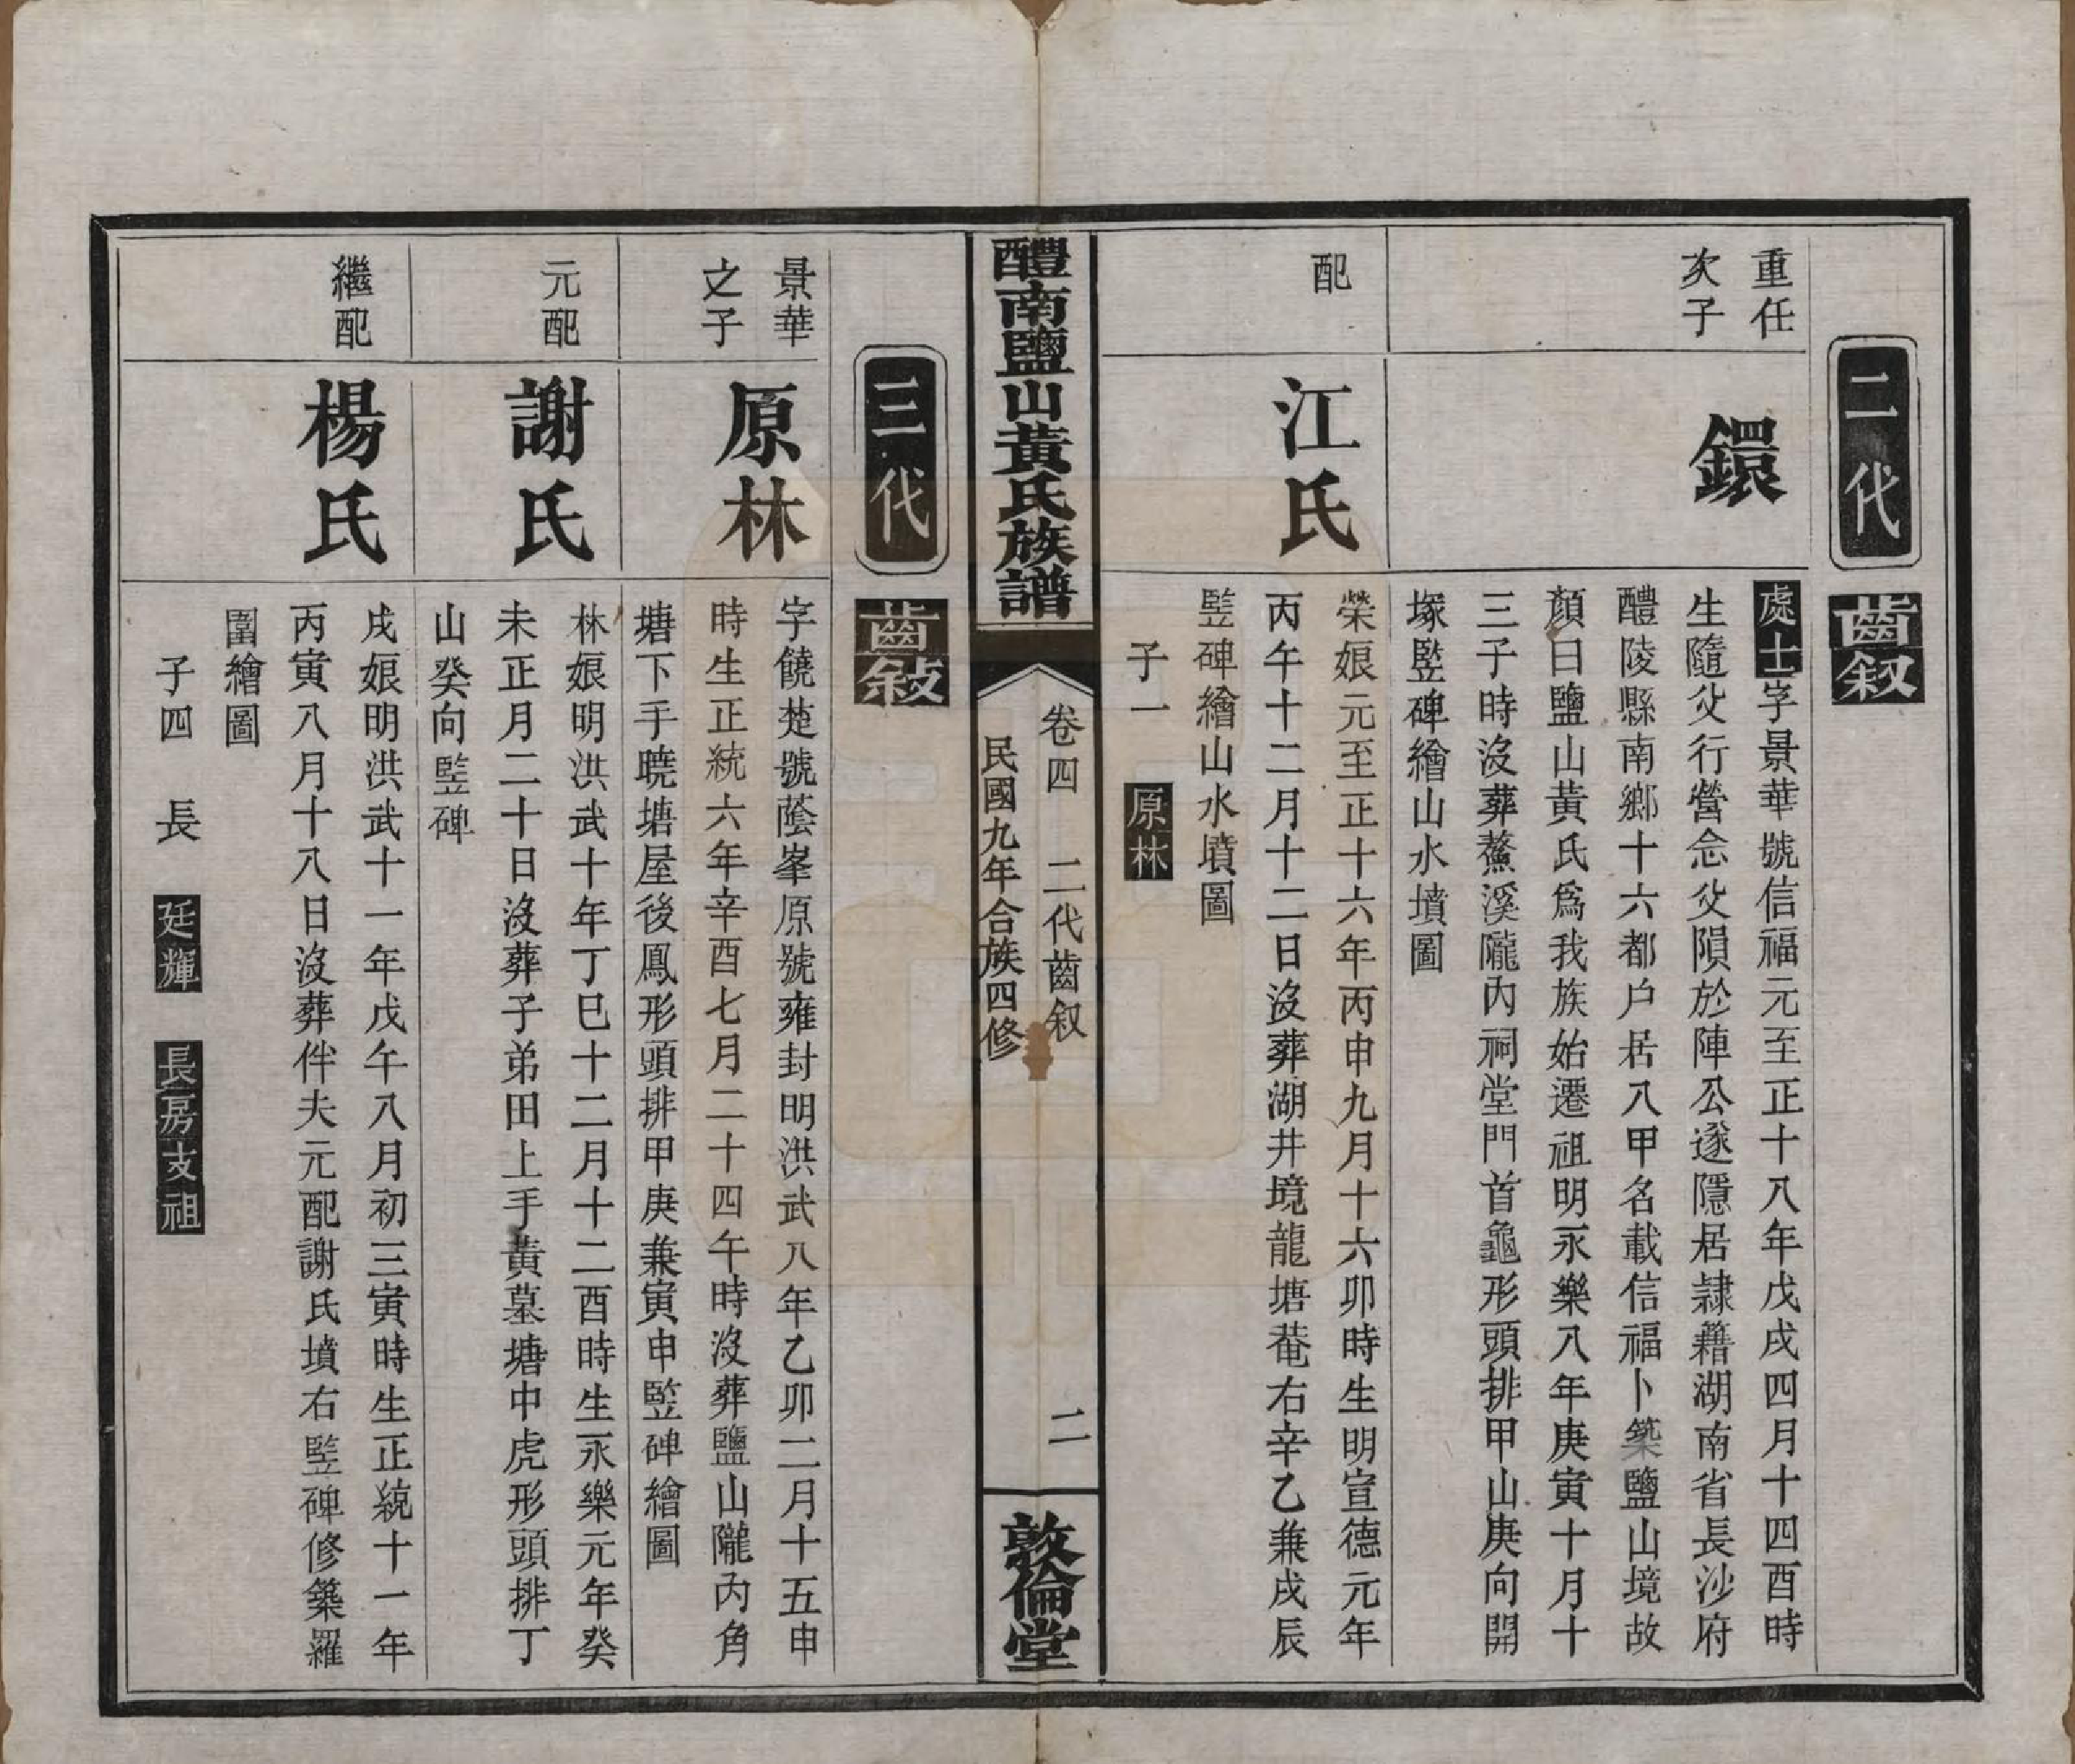 二代
齒叙
重任
次子
鐶
處士字景華號信福元至正十八年戊戌四月十四酉時
生隨父行營念父隕於陣公遂隱居隷籍湖南省長沙府
醴陵縣南鄉十六都户居八甲名載信福卜築鹽山境故
顏曰鹽山黃氏爲我族始遷祖明永樂八年庚寅十月十
三子時没葬鰲溪隴内祠堂門首龜形頭排甲山庚向開
塚竪碑繪山水墳圖
配
江氏
榮娘元至正十六年丙申九月十六卯時生明宣德元年
丙午十二月十二日没葬湖井境龍塘菴右辛乙兼戌辰
竪碑繪山水墳圖
子一 原林
醴南鹽山黃氏族譜
卷四 二代齒叙 二
民國九年合族四修
敦倫堂
三代
齒敍
景華
之子
原林
字饒楚號蔭峯原號雍封明洪武八年乙卯二月十五申
時生正統六年辛酉七月二十四午時没葬鹽山隴内角
塘下手曉塘屋後鳳形頭排甲庚兼寅申竪碑繪圖
元配
謝氏
林娘明洪武十年丁巳十二月十二酉時生永樂元年癸
未正月二十日没葬子弟田上手黃墓塘中虎形頭排丁
山癸向竪碑
繼配
楊氏
戌娘明洪武十一年戊午八月初三寅時生正統十一年
丙寅八月十八日没葬伴夫元配謝氏墳右竪碑修築羅
圍繪圖
子四 長 廷輝 長房支祖